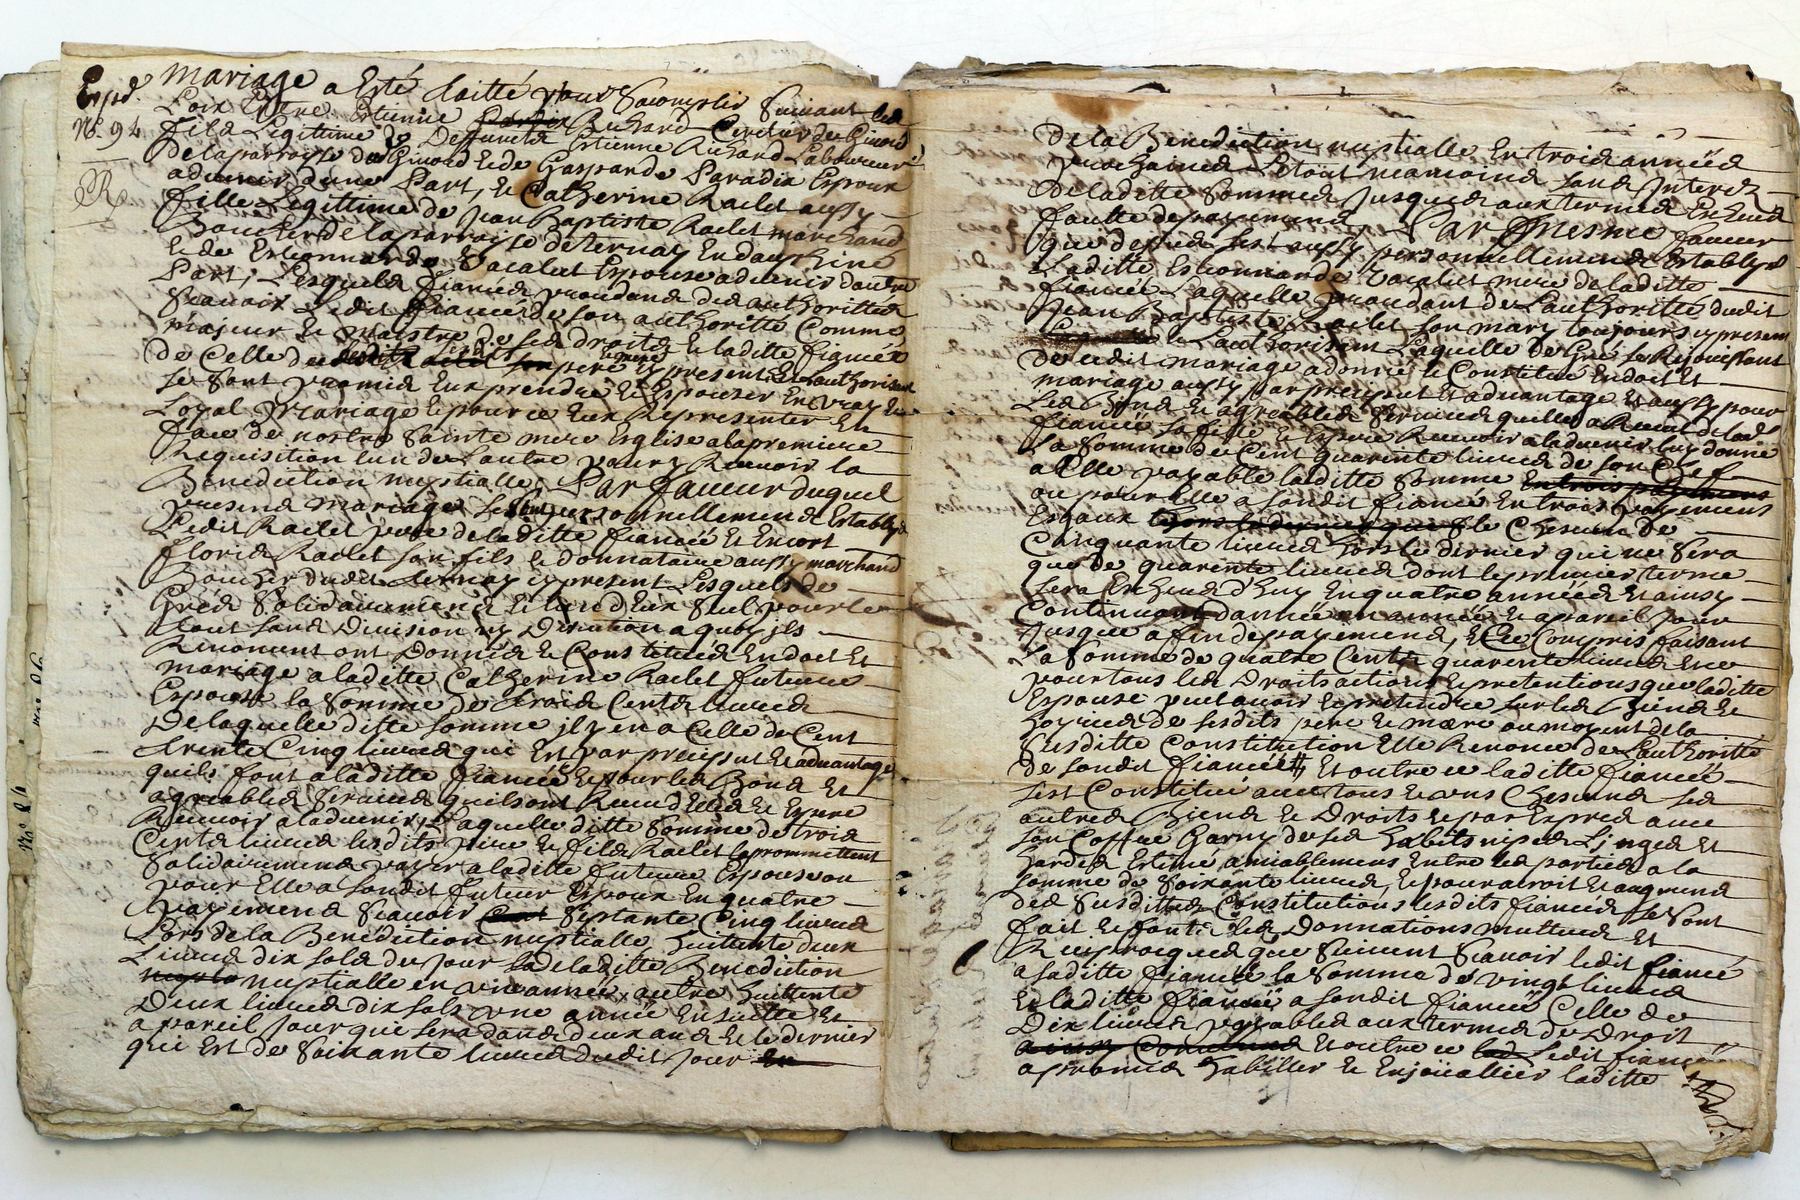 Expd.
N° 94
mariage a Esté traitté pour Sacomplir Suivant les
Loix Entre Estienne Richard Cercleur de Givord
fils Legitime de Deffuncts Estienne Richard Laboureur
de la parroisse de Givord et de Gasparde Paradis Espoux
advenir dune Part, et Catherine Raclet aussy
fille Legittime de Jean Baptiste Raclet marchand
Boucher de la parroisse de ternay En dauphiné
Et de Estiennarde Vacalut Espouse advenir dautre
Part; Lesquels fiancés procedand des authorittés
Scavoir Ledit fiancé de son authoritté Comme
majeur et maistre de ses droits et laditte fiancée
de Celle de pere et mere icy present et Lauthorisant
se sont promis Eux prendre et Espouser En vray et
Loyal Mariage et pour ce Eux Representer En
face de nostre Sainte mere Esglise a la premiere
Requisition lun de Lautre pour y Recevoir la
Benediction nuptialle; Par faveur duquel
present mariage se sont personnellement Establys
Ledit Raclet pere de laditte fiancée et Encort
floris Raclet son fils et donnataire aussy marchand
Boucher dudit ternay icy present Lesquels de
Grés Solidairement et lun dEux Seul pour le
tout sans Division ny Discution a quoy jls
Renoncent ont Donnés et Constitués En dot Et
mariage a laditte Catherine Raclet future
Espouse la Somme de trois Cents livres
De laquelle ditte Somme il y en a Celle de Cent
trente Cinq livres qui Est par precisput et advantage
quils font a laditte fiancée et pour les Bons Et
agreables Services quils ont Receu dElle et Espere
Recevoir a ladvenir, Laquelle ditte Somme de trois
Cents livres lesdits pere et fils Raclet promettent
Solidairement payer a laditte future Espouse ou
pour Elle a sondit futur Espoux En quatre
payements Scavoir Septante Cinq livres
Lors de la Benediction nuptialle, huittente deux
Livres dix sols du jour de laditte Benediction
nuptialle en une année, autre huittente
Deux livres dix sols une année Ensuitte Et
a pareil jour que sera dans deux ans et le dernier
qui Est de Soixante livres dudit jour
de la Benediction nuptialle En trois années
prochaines Letout neanmoins sans Interez
De laditte Somme Jusques aux termes Escheus
faulte de payement Par Mesme faveur
que dessus sest aussy personnellement Establye
Laditte Estiennarde Vacalut mere de laditte
fiancée Laquelle procedant de Lauthoritté dudit
Jean Baptiste Raclet son mary toujours icy present
et Lauthorisant Laquelle de Gré se Rejouissant
de cedit mariage a donné et Constitué En dot Et
mariage aussy par precisput Et advantage Et aussy pour
Les Bons et agreables Services quelle a Receu de lad.
fiancée sa fille et Espere Recevoir a ladvenir luy donne
La Somme de Cent quarente livres de son Chef
a Elle payable laditte Somme
ou pour Elle a sondit fiancé En trois payements
Esgaux le Chescun de
Cinquante livres hors le dernier qui ne Sera
que de quarente livres dont le premier terme
sera Escheus dhuy En quatre années Et ainsy
Continuant dannée en année et a pareil jour
Jusque a fin de payement, Et Ce Compris faisant
La Somme de quatre Cents quarente livres Et ce
pour tous les Droits actions et pretentions que laditte
Espouse peut avoir et pretendre sur les Biens et
hoyries de sesdits pere et mere au moyent de la
Susditte Constitution Elle Renonce de Lauthoritté
de sondit fiancé # Et outre ce laditte fiancée
sest Constitué avec tous et uns Chescuns ses
autres Biens et Droits et par Expres avec
son Coffre Garny de ses habits nipes Linges Et
hardes Estimé amiablement Entre les parties a la
somme de Soixante livres, et pour acroit Et augment
des Susdittes Constitutions lesdits fiancés se sont
fait et font les Donnations mutues Et
Reciproques que Suivent Scavoir ledit fiancé
a laditte fiancée la Somme de vingt livres
Et laditte fiancée a sondit fiancé Celle de
Dix livres payables aux termes de Droit
Et outre ce ledit fiancé
a promis habiller et Enjouallier laditte